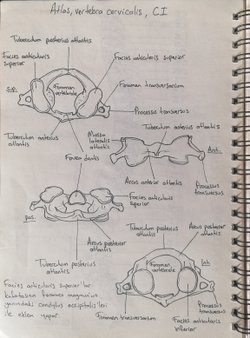 Atlas, vertebra cervicalis, CI
Tuberculum posterius atlantis
Facies articularis
superior
Facies articularis superior
Sup.
Foramen
vertebrale
Foramen transversarium
Processus transversus
Tuberculum anterius
atlantis
Massa
lateralis
atlantis
Tuberculum anterius atlantis
Fovea dentis
Ant.
Arcus anterior atlantis
Processus
transversus
Facies articularis
superior
Pos.
Tuberculum posterius
atlantis
Arcus posterior
atlantis
Arcus posterior
atlantis
Tuberculum posterius
atlantis
Foramen
vertebrale
Inf.
Facies articularis superior'lar
kafatasının foramen magnum'un
yanındaki condylus occipitalis'leri
ile eklem yapar.
Processus
transversus
Foramen transversarium
Facies articularis
inferior